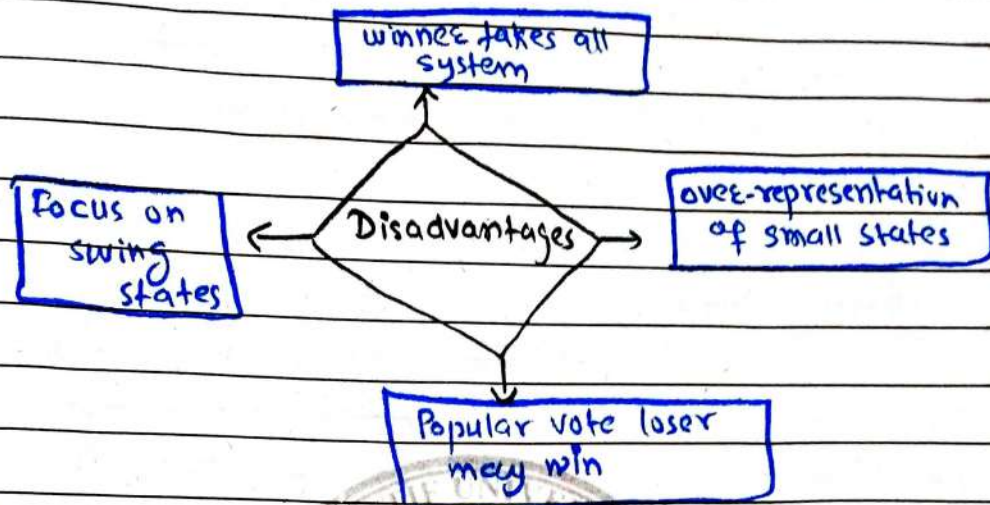 winner takes all
system
Focus on
swing
states
Disadvantages
over-representation
of small states
Popular vote loser
may win
THE UNIVER